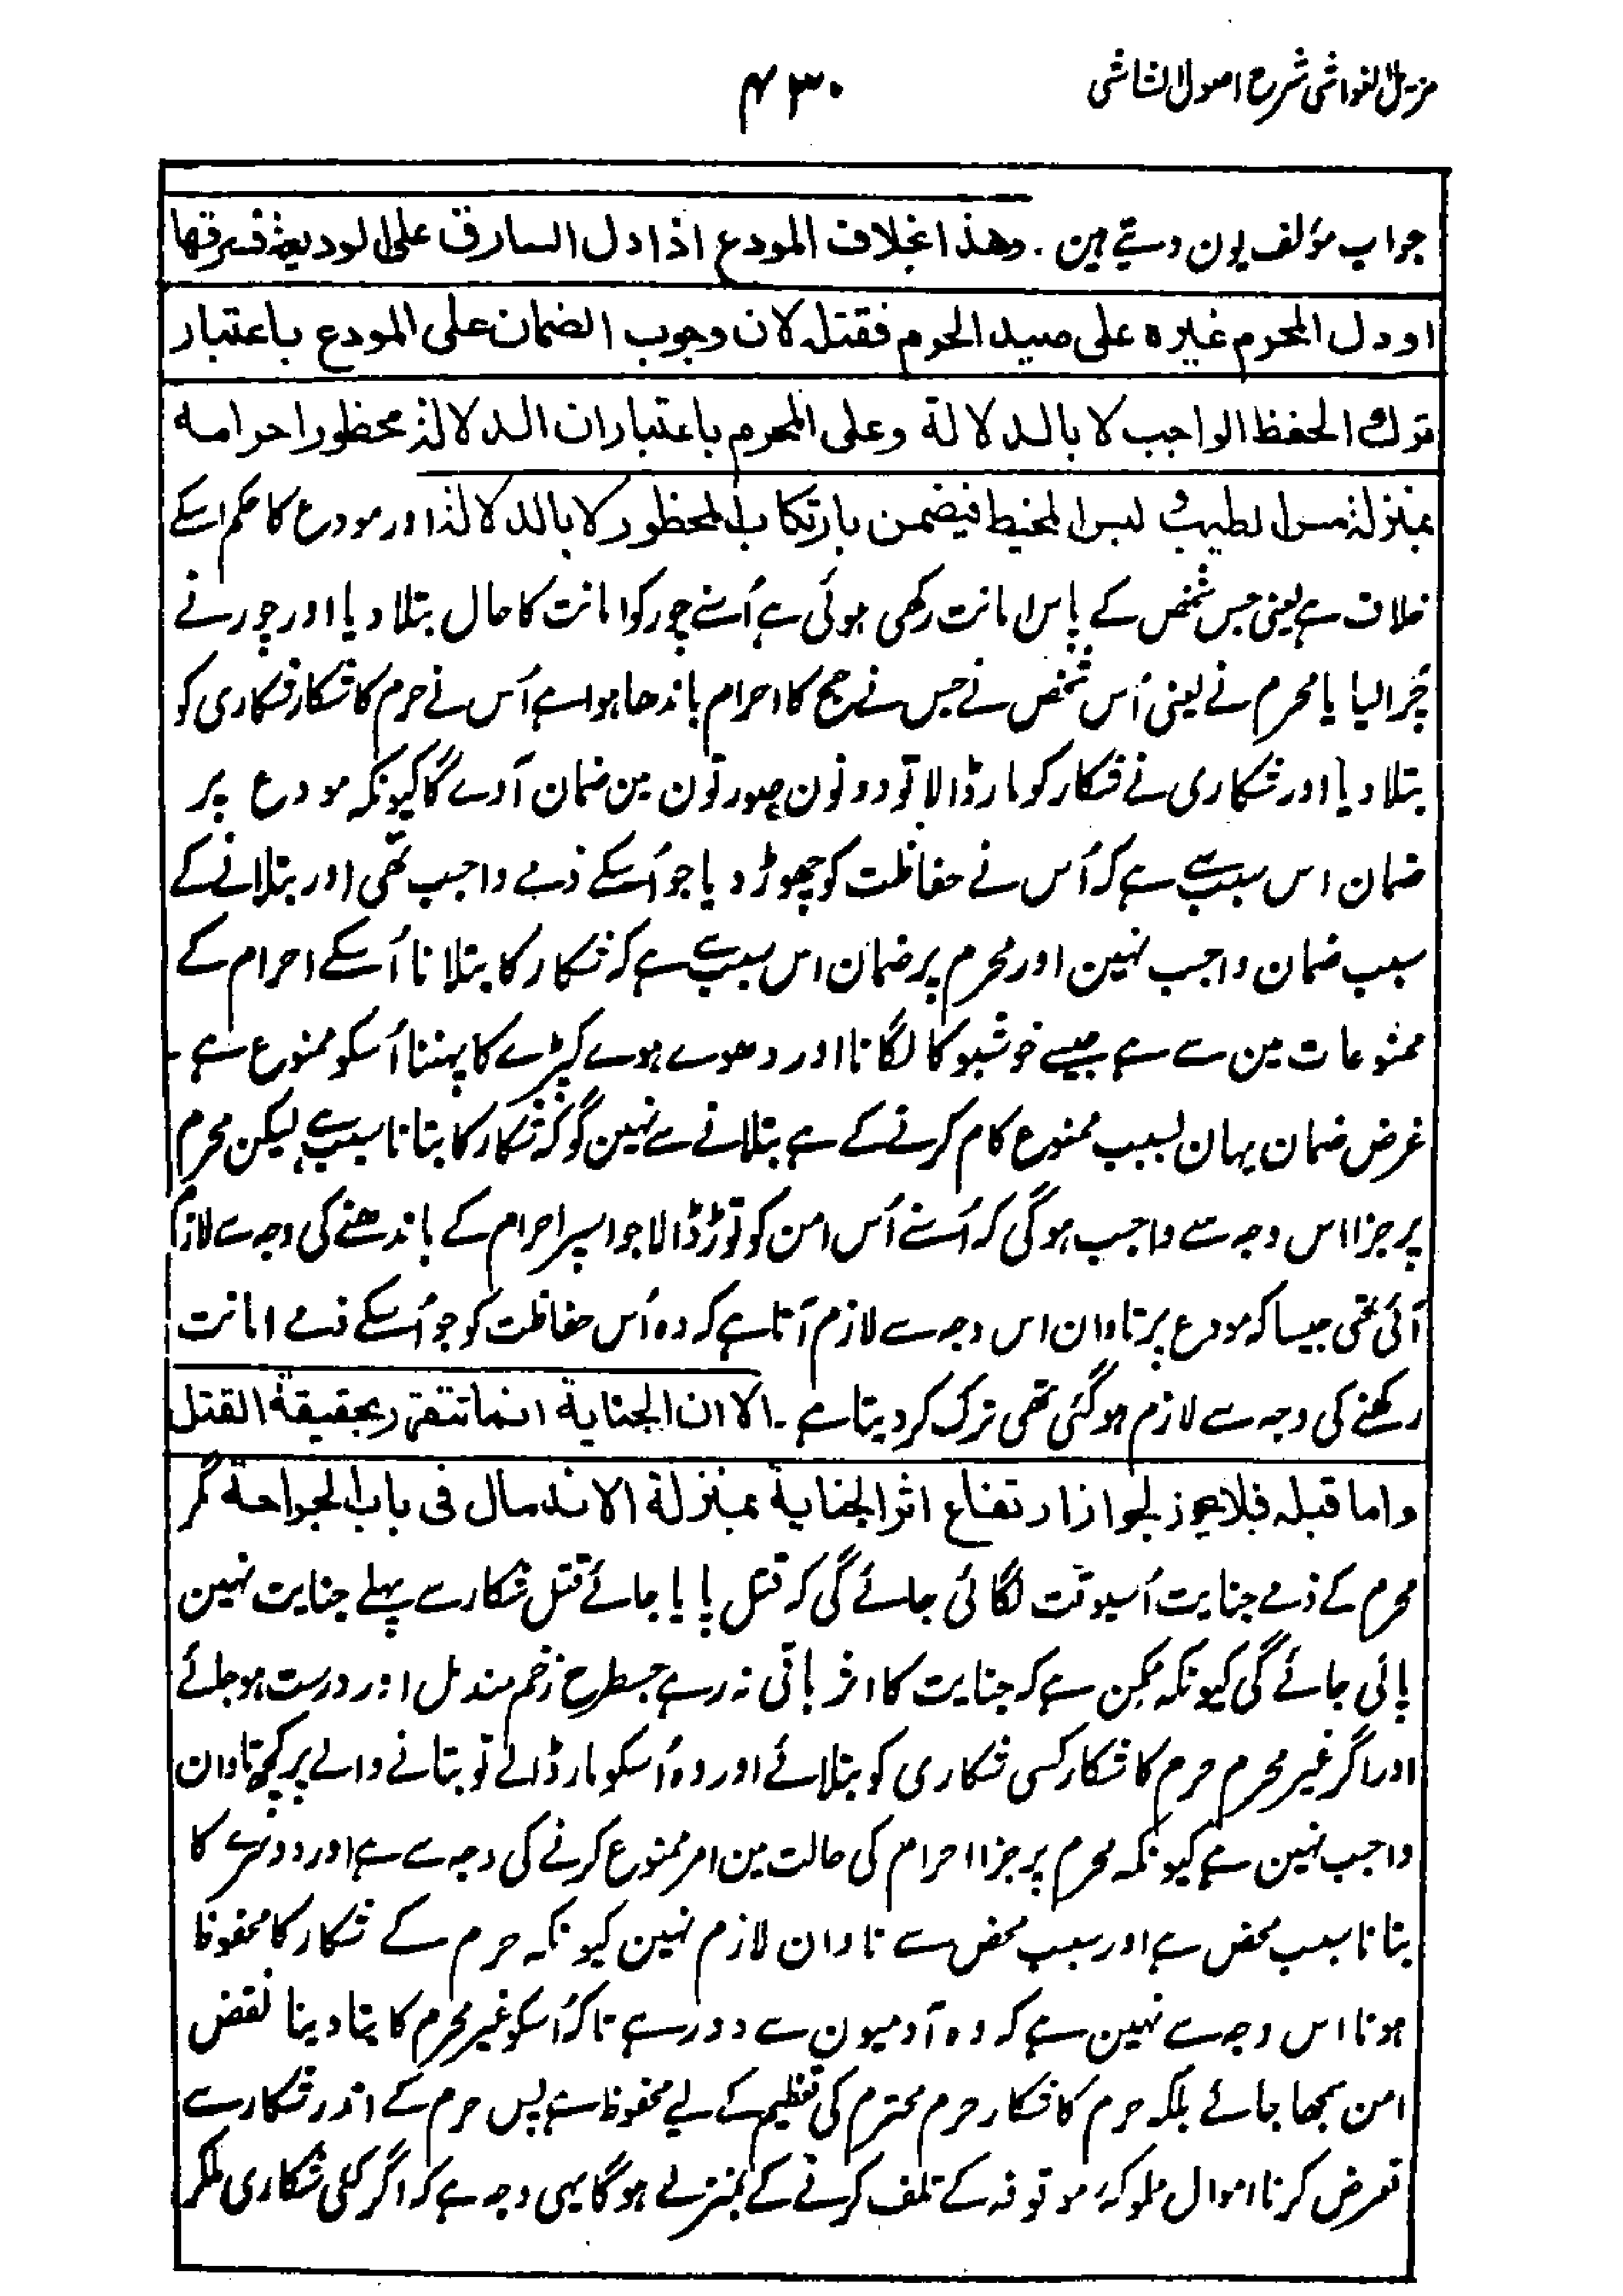 مزیل الغواشی شرح اصول الشاشی
۴۳۰
جواب مؤلف یون دیتے ہین ۔ وھذا بخلاف المودع اذا دل السارق علی الودیعة فسرقھا
او دل المحرم غیرہ علی صید الحرم فقتلہ لان وجوب الضمان علی المودع باعتبار
ترک الحفظ الواجب لا بالدلالة وعلی المحرم باعتبار ان الدلالة محظور احرامہ
بمنزلة مس الطیب و لبس المخیط فیضمن بارتکاب المحظور لا بالدلالة اور مودع کا حکم اسکے
خلاف ہے یعنی جس شخص کے پاس امانت رکھی ہوئی ہے اُسنے چور کو امانت کا حال بتلا دیا اور چور نے
چُرا لیا یا محرم نے یعنی اُس شخص نے جس نے حج کا احرام باندھا ہوا ہے اُس نے حرم کا شکار شکاری کو
بتلا دیا اور شکاری نے شکار کو مار ڈالا تو دونون صورتون مین ضمان آوے گا کیونکہ مودع پر
ضمان اس سبب سے ہے کہ اُس نے حفاظت کو چھوڑ دیا جو اُسکے ذمے واجب تھی اور بتلانے کے
سبب ضمان واجب نہین اور محرم پر ضمان اس سبب سے ہے کہ شکار کا بتلانا اُسکے احرام کے
ممنوعات مین سے ہے جیسے خوشبو کا لگانا اور دھوے ہوے کپڑے کا پہننا اُسکو ممنوع ہے ۔
غرض ضمان یہان بسبب ممنوع کام کرنے کے ہے بتلانے سے نہین گو کہ شکار کا بتانا سبب ہے لیکن محرم
پر جزا اس وجہ سے واجب ہوگی کہ اُسنے اُس امن کو توڑ ڈالا جو اسپر احرام کے باندھنے کی وجہ سے لازم
آئی تھی جیسا کہ مودع پر تاوان اس وجہ سے لازم آتا ہے کہ وہ اُس حفاظت کو جو اُسکے ذمے امانت
رکھنے کی وجہ سے لازم ہوگئی تھی ترک کر دیتا ہے ۔ الا ان الجنایة انما تتقرر بحقیقة القتل
واما قبلہ فلا یجوز لجواز ارتفاع اثر الجنایة بمنزلة الاندمال فی باب الجراحة مگر
محرم کے ذمے جنایت اُسیوقت لگائی جائے گی کہ قتل پایا جائے قتل شکار سے پہلے جنایت نہین
پائی جائے گی کیونکہ ممکن ہے کہ جنایت کا اثر باقی نہ رہے جسطرح زخم مندمل اور درست ہو جائے
اور اگر غیر محرم حرم کا شکار کسی شکاری کو بتلائے اور وہ اُسکو مار ڈالے تو بتانے والے پر کچھ تاوان
واجب نہین ہے کیونکہ محرم پر جزا احرام کی حالت مین امر ممنوع کرنے کی وجہ سے ہے اور دوسرے کا
بتانا سبب محض ہے اور سبب محض سے تاوان لازم نہین کیونکہ حرم کے شکار کا محفوظ
ہونا اس وجہ سے نہین ہے کہ وہ آدمیون سے دور رہے تاکہ اُسکو غیر محرم کا بتا دینا نقض
امن سمجھا جائے بلکہ حرم کا شکار حرم محترم کی تعظیم کے لیے محفوظ ہے پس حرم کے اندر شکار سے
تعرض کرنا اموال مملوکہ موقوفہ کے تلف کرنے کے بمنزلے ہوگا یہی وجہ ہے کہ اگر کئی شکاری ملکر